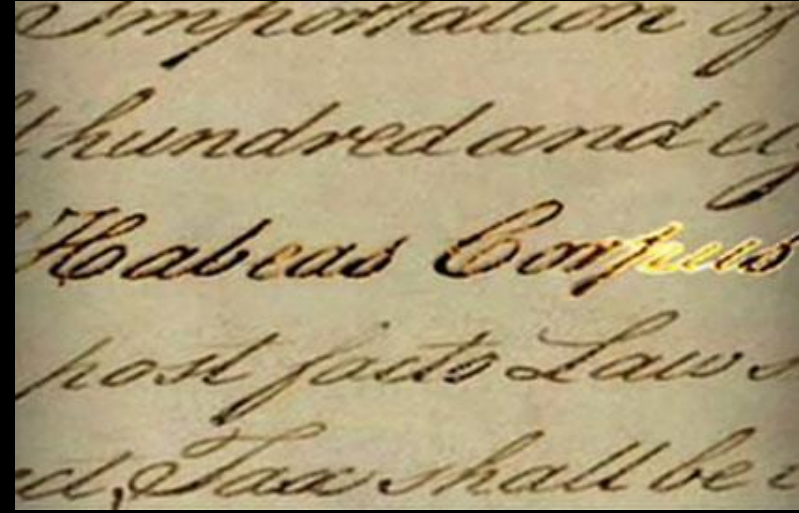 Importation of
hundred and eig
Habeas Corpus
post facto Law s
ct, Tax shall be